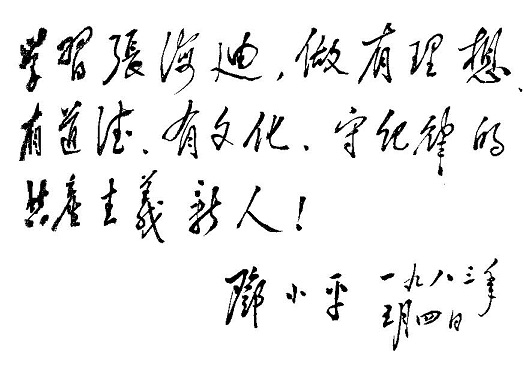 学習張海迪,做有理想、
有道德、有文化、守纪律的
共產主義新人!
鄧小平 一九八三年
五月四日